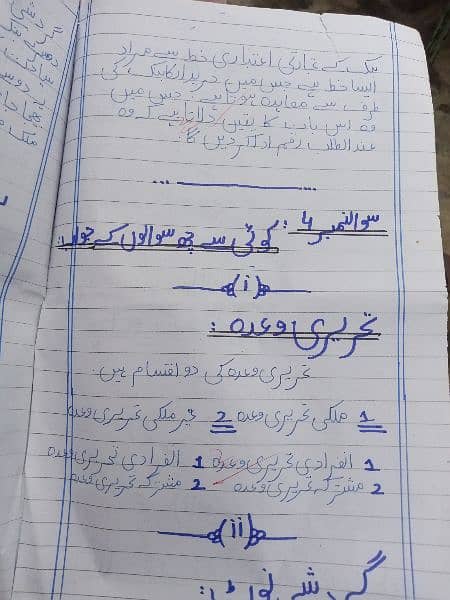 بنک کے تجارتی اعتباری خط سے مراد
ایسا خط ہے جس میں خریدار کا بنک کی
طرف سے معاہدہ ہوتا ہے۔ جس میں
وہ اس بات کا یقین دلاتا ہے کہ وہ
عندالطلب رقم ادا کر دیں گا۔
سوال نمبر 4: کوئی سے چھ سوالوں کے جواب:
(i)
تحریری وعدہ:
تحریری وعدہ کی دو اقسام ہیں۔
1 ملکی تحریری وعدہ 2 غیر ملکی تحریری وعدہ
1 انفرادی تحریری وعدہ 1 انفرادی تحریری وعدہ
2 مشترکہ تحریری وعدہ 2 مشترکہ تحریری وعدہ
(ii)
گشتی نوٹ: